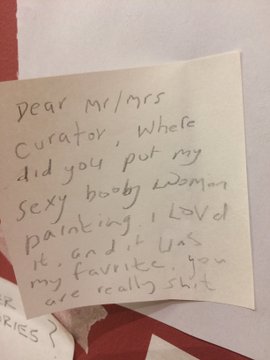 Dear Mr/Mrs
Curator, Where
did you put my
sexy booby Woman
painting. I Lovd
it. and it Was
my favrite. you
are really shit
ER
ORIES?